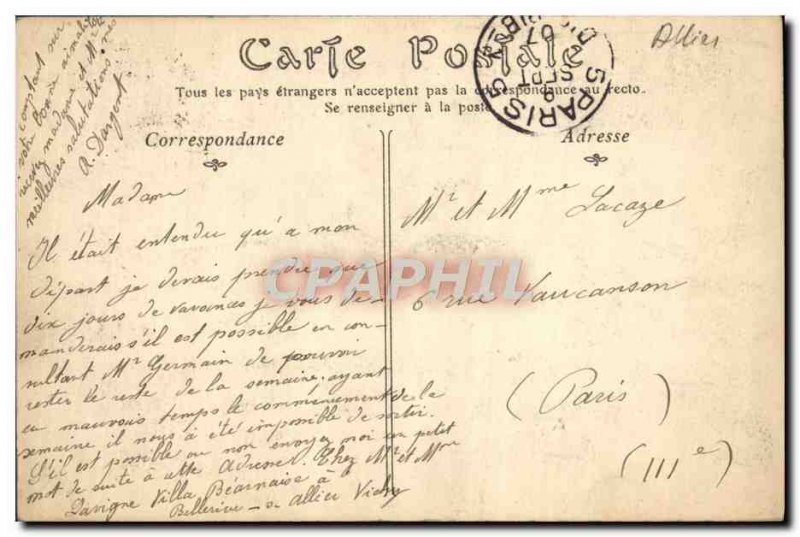 Carte Postale
Tous les pays étrangers n'acceptent pas la correspondance au recto.
Se renseigner à la poste
Correspondance
Adresse
Allier
5 PARIS
9
SEPT
07
DISTRIB
Madame
Il était entendu qu'à mon
départ je devais prendre que
dix jours de vacances je vous de-
manderais s'il est possible en con-
sultant Mr Germain de pouvoir
rester le reste de la semaine. ayant
eu mauvais temps le commencement de la
semaine il nous a été impossible de sortir.
S'il est possible ou non envoyez moi un petit
mot de suite à cette Adresse. Chez Mr et Mme
Lavigne Villa Béarnaise à
Bellerive - s- Allier Vichy
comptant sur
votre bonne amabilité
recevez madame et Mr mes
meilleures salutations
A. Dargent
Mr et Mme Lacaze
6 rue Vaucanson
(Paris)
(IIIe)
CPAPHIL